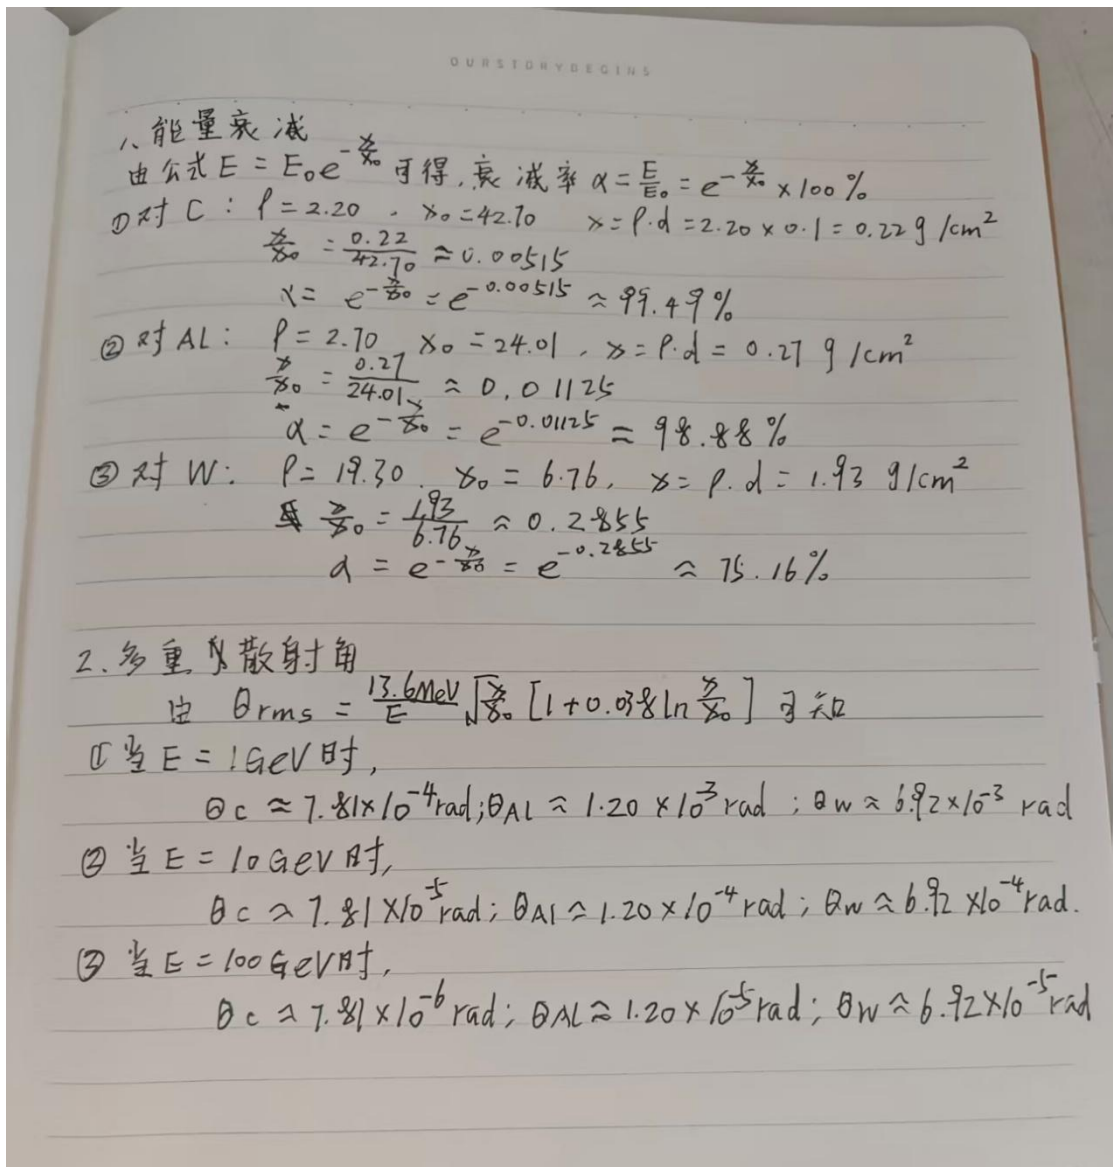 OURSTORYBEGINS
1、能量衰减
由公式 E = E₀e^{-x/x₀} 可得，衰减率 α = E/E₀ = e^{-x/x₀} × 100%
①对 C： ρ = 2.20 ， x₀ = 42.70 x = ρ·d = 2.20 × 0.1 = 0.22 g/cm²
x/x₀ = 0.22/42.70 ≈ 0.00515
α = e^{-x/x₀} = e^{-0.00515} ≈ 99.49%
② 对 AL： ρ = 2.70 x₀ = 24.01 , x = ρ.d = 0.27 g/cm²
x/x₀ = 0.27/24.01 ≈ 0.01125
α = e^{-x/x₀} = e^{-0.01125} ≈ 98.88%
③ 对 W： ρ = 19.30 . x₀ = 6.76, x = ρ.d = 1.93 g/cm²
x/x₀ = 1.93/6.76 ≈ 0.2855
α = e^{-x/x₀} = e^{-0.2855} ≈ 75.16%
2、多重散射角
由 θrms = 13.6MeV/E √(x/x₀) [1+0.038ln x/x₀] 可知
① 当 E = 1GeV 时，
θc ≈ 7.81×10⁻⁴rad; θAl ≈ 1.20×10⁻³rad ; θw ≈ 6.92×10⁻³ rad
② 当 E = 10GeV 时，
θc ≈ 7.81×10⁻⁵rad; θAl ≈ 1.20×10⁻⁴rad ; θw ≈ 6.92×10⁻⁴rad.
③ 当 E = 100GeV 时，
θc ≈ 7.81×10⁻⁶rad; θAL ≈ 1.20×10⁻⁵rad; θW ≈ 6.92×10⁻⁵rad